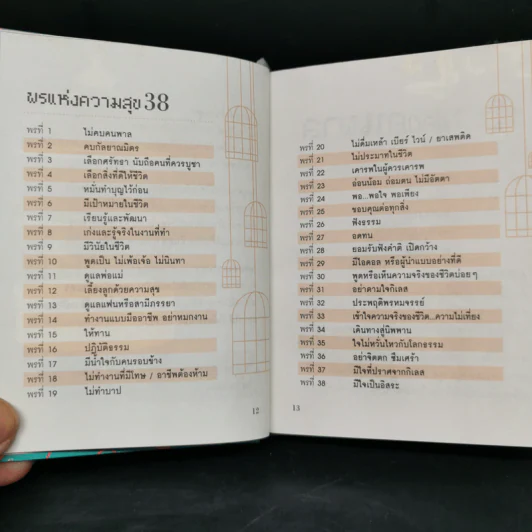 พรแห่งความสุข 38
พรที่ 1 ไม่คบคนพาล
พรที่ 2 คบกัลยาณมิตร
พรที่ 3 เลือกศรัทธา นับถือคนที่ควรบูชา
พรที่ 4 เลือกสิ่งที่ดีให้ชีวิต
พรที่ 5 หมั่นทำบุญไว้ก่อน
พรที่ 6 มีเป้าหมายในชีวิต
พรที่ 7 เรียนรู้และพัฒนา
พรที่ 8 เก่งและรู้จริงในงานที่ทำ
พรที่ 9 มีวินัยในชีวิต
พรที่ 10 พูดเป็น ไม่เพ้อเจ้อ ไม่นินทา
พรที่ 11 ดูแลพ่อแม่
พรที่ 12 เลี้ยงลูกด้วยความสุข
พรที่ 13 ดูแลแฟนหรือสามีภรรยา
พรที่ 14 ทำงานแบบมืออาชีพ อย่าหมกงาน
พรที่ 15 ให้ทาน
พรที่ 16 ปฏิบัติธรรม
พรที่ 17 มีน้ำใจกับคนรอบข้าง
พรที่ 18 ไม่ทำงานที่มีโทษ / อาชีพต้องห้าม
พรที่ 19 ไม่ทำบาป
12
พรที่ 20 ไม่ดื่มเหล้า เบียร์ ไวน์ / ยาเสพติด
พรที่ 21 ไม่ประมาทในชีวิต
พรที่ 22 เคารพในผู้ควรเคารพ
พรที่ 23 อ่อนน้อม ถ่อมตน ไม่มีอัตตา
พรที่ 24 พอ...พอใจ พอเพียง
พรที่ 25 ขอบคุณต่อทุกสิ่ง
พรที่ 26 ฟังธรรม
พรที่ 27 อดทน
พรที่ 28 ยอมรับฟังคำติ เปิดกว้าง
พรที่ 29 มีไอดอล หรือผู้นำแบบอย่างที่ดี
พรที่ 30 พูดหรือเห็นความจริงของชีวิตบ่อยๆ
พรที่ 31 อย่าตามใจกิเลส
พรที่ 32 ประพฤติพรหมจรรย์
พรที่ 33 เข้าใจความจริงของชีวิต...ความไม่เที่ยง
พรที่ 34 เดินทางสู่นิพพาน
พรที่ 35 ใจไม่หวั่นไหวกับโลกธรรม
พรที่ 36 อย่าจิตตก ซึมเศร้า
พรที่ 37 มีใจที่ปราศจากกิเลส
พรที่ 38 มีใจเป็นอิสระ
13